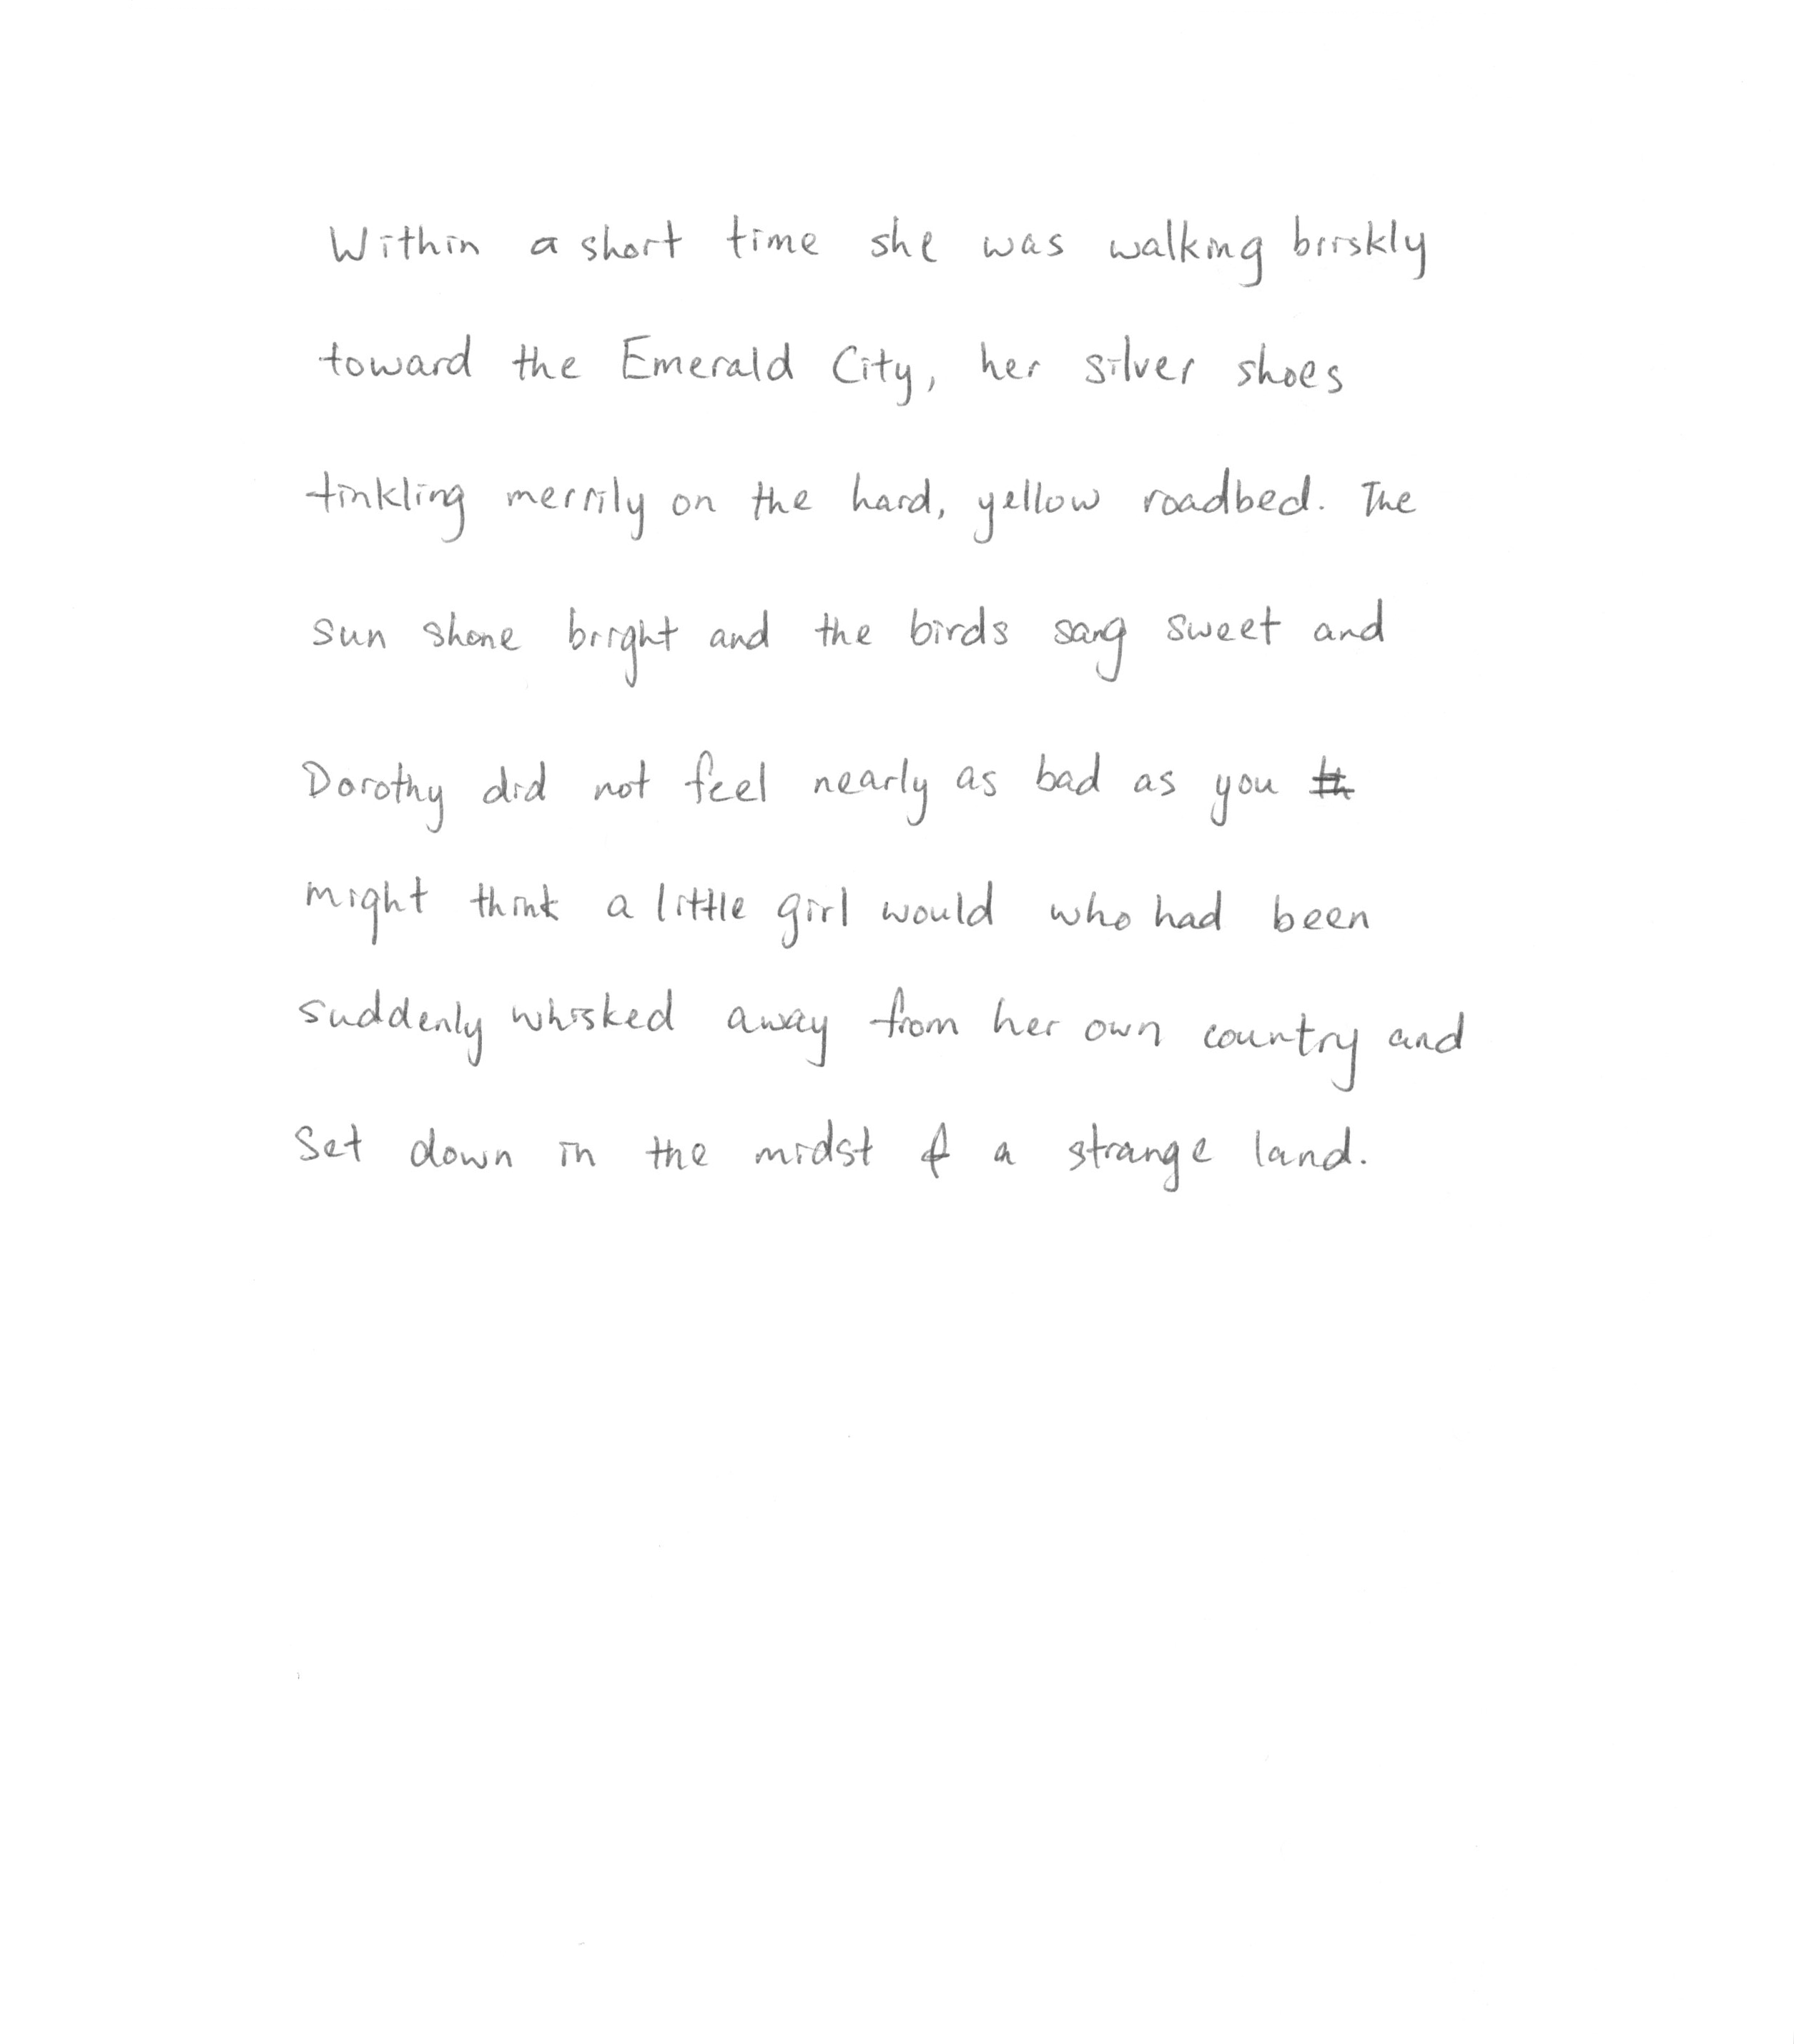 Within a short time she was walking briskly
toward the Emerald City, her silver shoes
tinkling merrily on the hard, yellow roadbed. The
sun shone bright and the birds sang sweet and
Dorothy did not feel nearly as bad as you
might think a little girl would who had been
suddenly whisked away from her own country and
set down in the midst of a strange land.